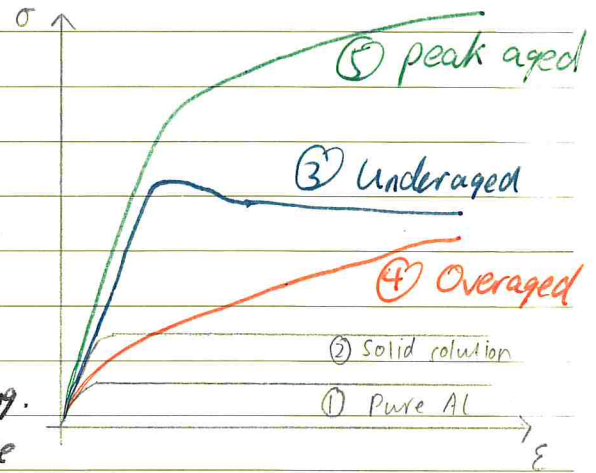 σ
⑤ peak aged
③ Underaged
④ Overaged
② Solid solution
① Pure Al
g.
e
ε